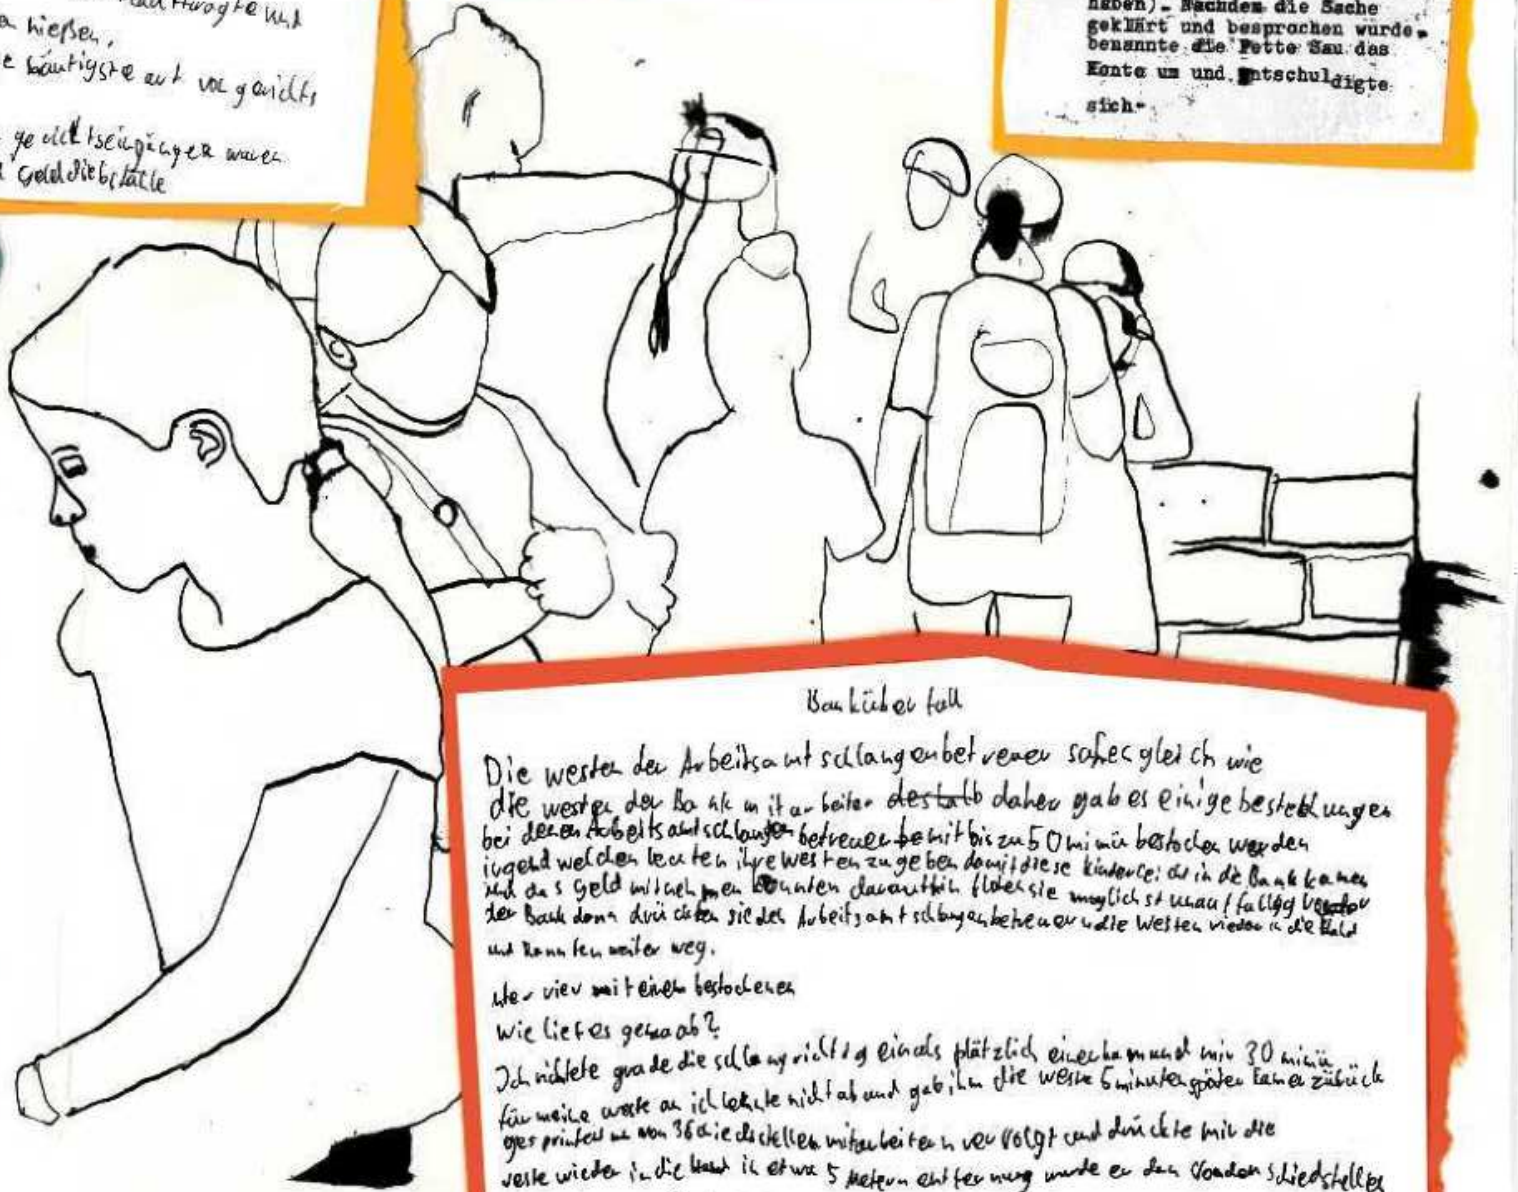 und
hießen,
häutigste art vor gerichts
gerichtseingängen waren
Gelddiebställe
haben). Nachdem die Sache
geklärt und besprochen wurde,
benannte die Fette Sau das
Konto um und entschuldigte
sich.
Banküberfall
Die westen der Arbeitsamtschlangenbetreuer sahen gleich wie
die westen der Bankmitarbeiter deshalb daher gab es einige bestechungen
bei denen Arbeitsamtschlangenbetreuer be mit bis zu 50 mimü bestochen werden
irgend welchen leuten ihre westen zu geben damit diese kinderleicht in die Bank kamen
und das Geld mitnehmen konnten daraufhin flohen sie möglichst unauffällig
der Bank dann drückten sie den Arbeitsamtschlangenbetreuern die Westen wieder in die Hand
und rannten weiter weg.
mit einem bestochenen
wie lief es genau ab?
Ich richtete grade die schlange richtig ein als plätzlich einer kam und mir 30 mimü
für meine weste an ich lehnte nicht ab und gab ihm die weste 5 minuten später kam er zübück
gesprintet von 3 schiedsstellen mitarbeitern vervolgt und drückte mir die
weste wieder in die Hand in etwa 5 Metern entfernung wurde er dan von den schiedstellen